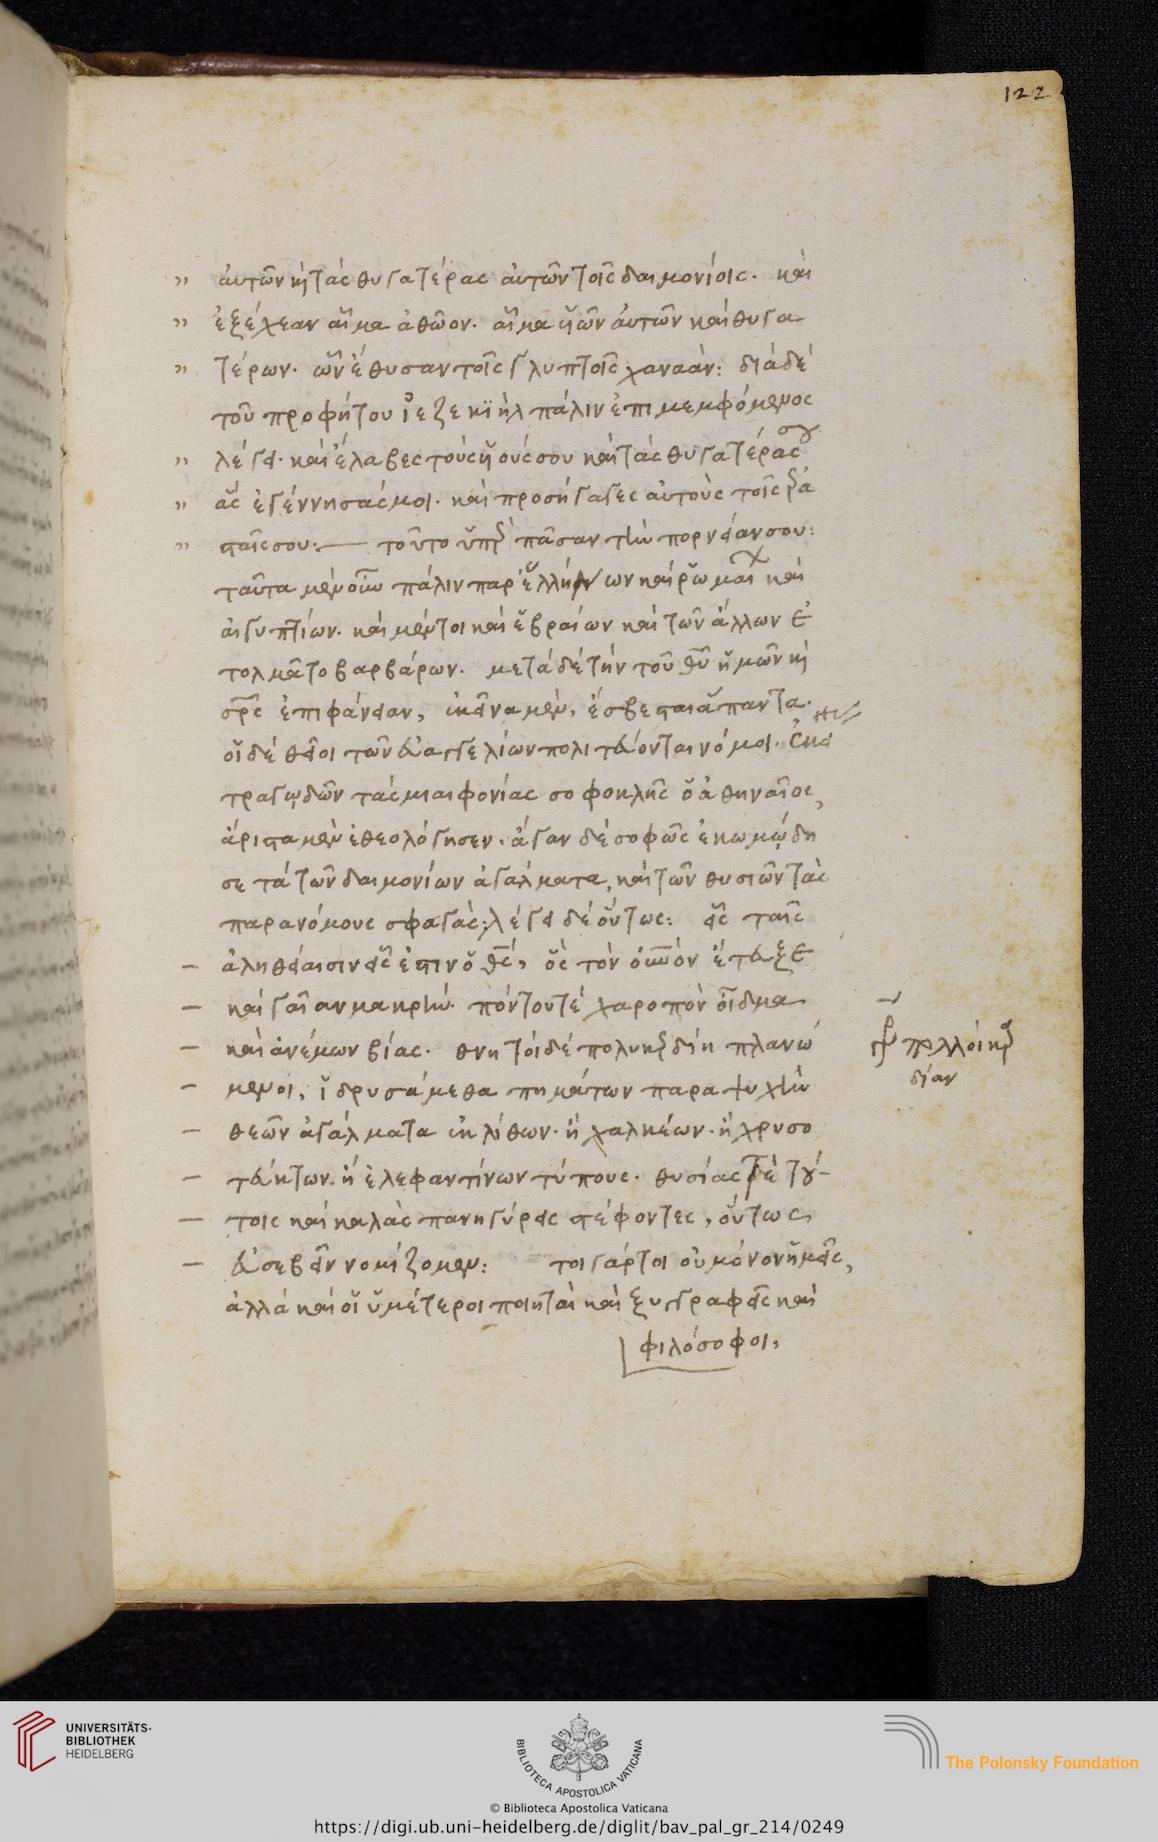 122
" αὐτῶν κ̀ τὰς θυγατέρας αὐτῶν τοῖς δαιμονίοις. καὶ
" ἐξέχεαν αἷμα ἀθῶον. αἷμα υἱῶν αὐτῶν καὶ θυγα
" τέρων. ὧν ἔθυσαν τοῖς γλυπτοῖς χαναάν: διὰ δὲ
τοῦ προφήτου ἰεζεκιὴλ πάλιν ἐπιμεμφόμενος
" λέγει. καὶ ἔλαβες τοὺς υἱούς σου καὶ τὰς θυγατέρας σου
" ἃς ἐγέννησάς μοι. καὶ προσήγαγες αὐτοὺς τοῖς ἐρα
" σταῖς σου:— τοῦτο ὑπὲρ πᾶσαν τὴν πορνείαν σου:
ταῦτα μὲν οὖν πάλιν παρ' ἑλλήνων καὶ ῥωμαι καὶ
αἰγυπτίων. καὶ μέντοι καὶ ἑβραίων καὶ τῶν ἄλλων ἐ
τολμᾶτο βαρβάρων. μετὰ δὲ τὴν τοῦ θῦ ἡμῶν κ̀
σρ̅ς ἐπιφάνειαν, ἐκεῖνα μὲν, ἔσβεσται ἅπαντα.
οἱ δὲ θεῖοι τῶν εὐαγγελίων πολιτεύονται νόμοι.
τραγῳδῶν τὰς μιαιφονίας σοφοκλῆς ὁ ἀθηναῖος,
ἄριστα μὲν ἐθεολόγησεν. ἄγαν δὲ σοφῶς ἐκωμῴδη
σε τὰ τῶν δαιμονίων ἀγάλματα, καὶ τῶν θυσιῶν τὰς
παρανόμους σφαγάς: λέγει δὲ οὕτως: εἷς ταῖς
– ἀληθείαισιν εἷς ἐστιν ὁ θς̅, ὃς τὸν οὐνὸν ἔτευξε
– καὶ γαῖαν μακρὴν. πόντου τὲ χαροπὸν οἶδμα
– καὶ ἀνέμων βίας. θνητοὶ δὲ πολυκερδίη πλανώ
– μενοι, ἱδρυσάμεθα πημάτων παραψυχὴν
– θεῶν ἀγάλματα ἐκ λίθων. ἢ χαλκέων. ἢ χρυσο
– τεύκτων. ἢ ἐλεφαντίνων τύπους. θυσίας τὲ τού
– τοις καὶ καλὰς πανηγύρεις στέφοντες, οὕτως
– εὐσεβεῖν νομίζομεν: τοιγάρτοι οὐ μόνον ἡμεῖς,
ἀλλὰ καὶ οἱ ὑμέτεροι ποιηταὶ καὶ ξυγγραφεῖς καὶ
φιλόσοφοι,
UNIVERSITÄTS-
BIBLIOTHEK
HEIDELBERG
BIBLIOTECA APOSTOLICA VATICANA
The Polonsky Foundation
© Biblioteca Apostolica Vaticana
https://digi.ub.uni-heidelberg.de/diglit/bav_pal_gr_214/0249